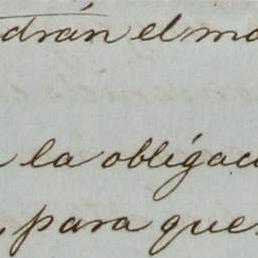 drán el ma
la obligac
, para que